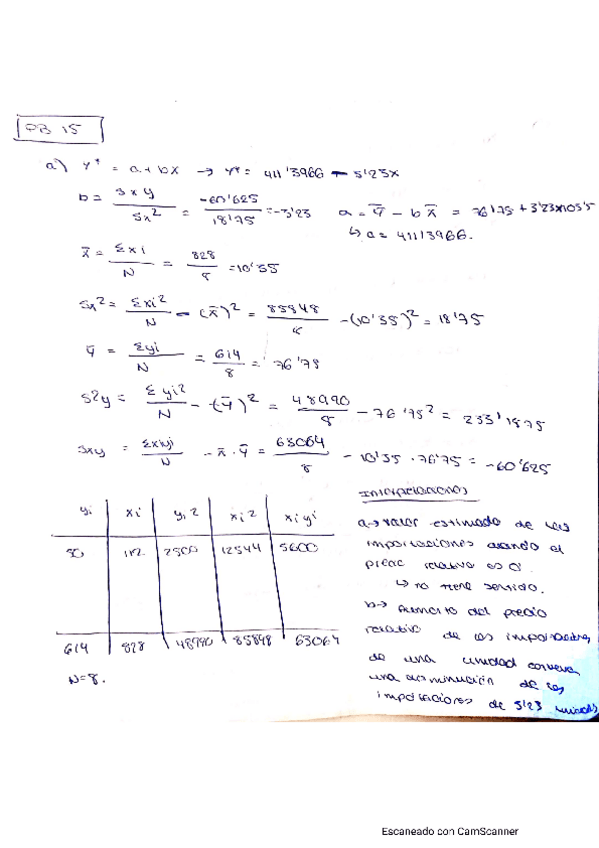 PB 15
a) Y* = a + bx → Y* = 411'3966 - 3'23x
b = Sxy / Sx² = -60'625 / 18'75 = -3'23   a = ȳ - b x̄ = 76'75 + 3'23x103'5
↳ a = 411'3966.
x̄ = Σxi / N = 828 / 8 = 10'35
Sx² = Σxi² / N - (x̄)² = 85848 / 8 - (10'35)² = 18'75
ȳ = Σyi / N = 614 / 8 = 76'75
S²y = Σyi² / N - (ȳ)² = 48990 / 8 - 76'75² = 233'1875
Sxy = Σxiyi / N - x̄ · ȳ = 63064 / 8 - 10'35 · 76'75 = -60'625
yi xi yi² xi² xiyi
50 112 2500 12544 5600
614 828 48990 85848 63064
N=8.
Interpretaciones
a → valor estimado de las
importaciones cuando el
precio relativo es 0
↳ no tiene sentido.
b → Aumento del precio
relativo de las importaciones
de una unidad conlleva
una disminución de las
importaciones de 3'23 unidades
Escaneado con CamScanner